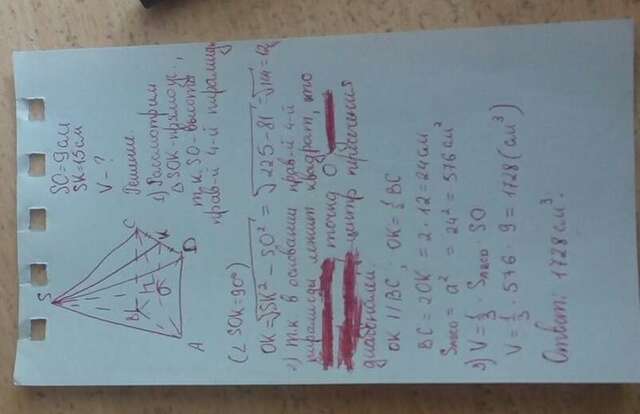 S
B
C
K
O
A
D
SO = 9 см
SK = 15 см
V - ?
Решение.
1) Рассмотрим
△SOK - прямоуг.,
т.к. SO - высота
прав-й 4-й пирамиды
(∠SOK = 90°)
OK = √SK² - SO² = √225 - 81 = √144 = 12
2) т.к в основании прав-й 4-й
пирамиды лежит квадрат, что
точка O
центр пересечения
диагоналей
OK || BC ; OK = ½ BC
BC = 2OK = 2 · 12 = 24 см
Sкво = a² = 24² = 576 см²
3) V = ⅓ · Sкво · SO
V = ⅓ · 576 · 9 = 1728 (см³)
Ответ: 1728 см³.